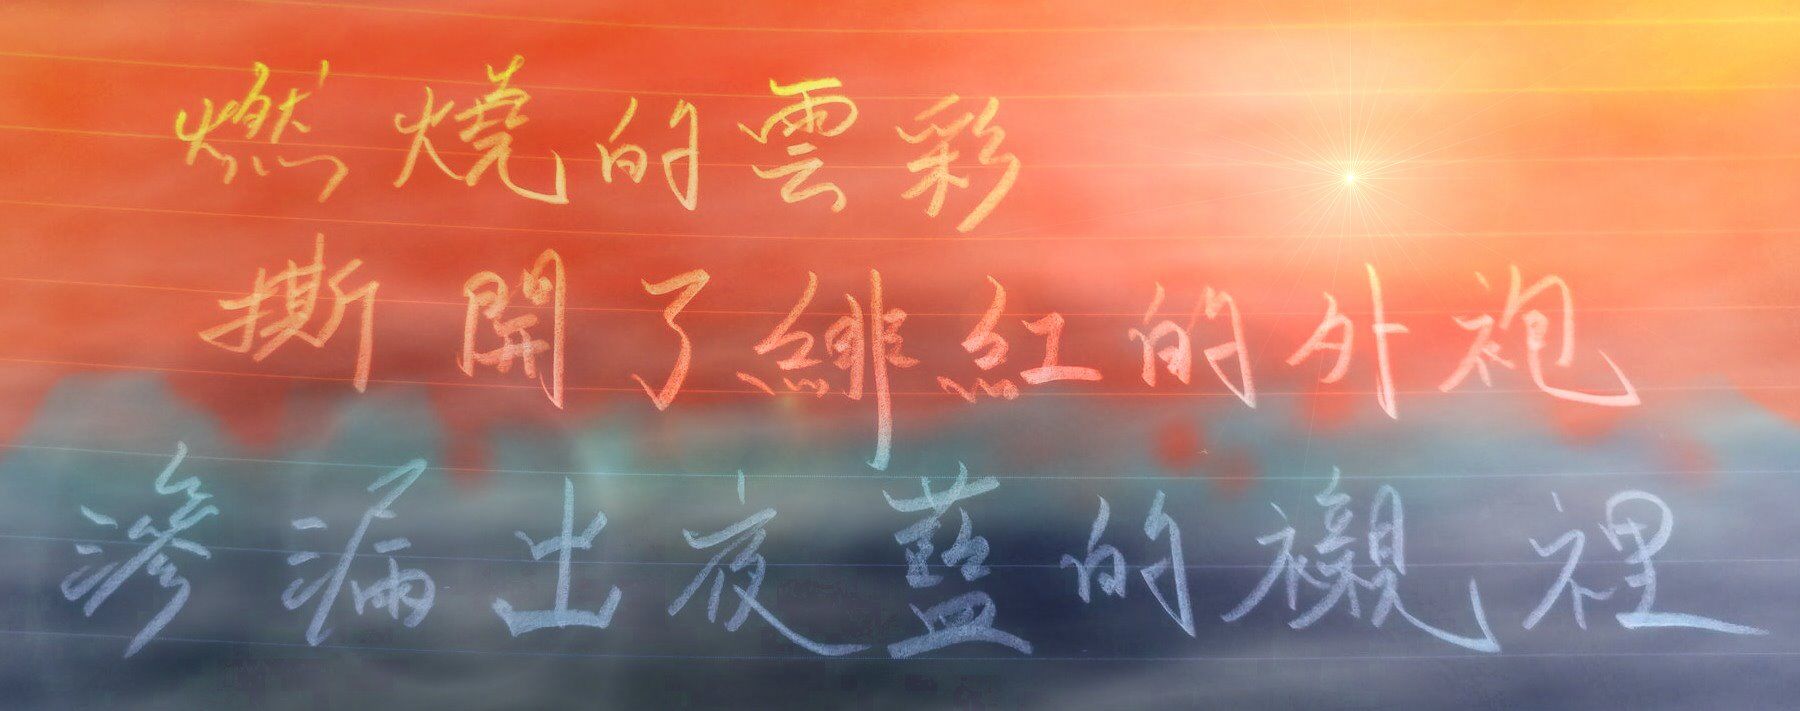 燃燒的雲彩
撕開了緋紅的外袍
滲漏出夜藍的襯裡